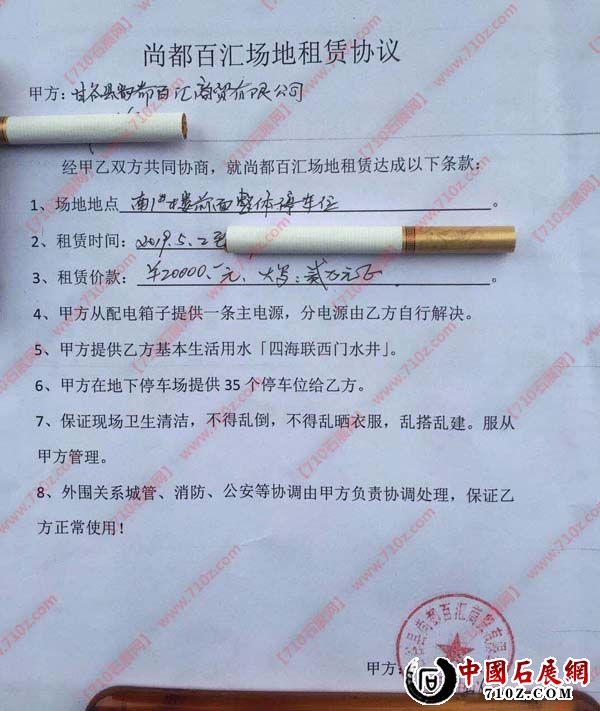 尚都百汇场地租赁协议
甲方：甘谷县尚都百汇商贸有限公司
经甲乙双方共同协商，就尚都百汇场地租赁达成以下条款：
1、场地地点 南1#楼前面整体停车位。
2、租赁时间：2019.5.2至
3、租赁价款：¥20000.-元，大写：贰万元正。
4、甲方从配电箱子提供一条主电源，分电源由乙方自行解决。
5、甲方提供乙方基本生活用水「四海联西门水井」。
6、甲方在地下停车场提供 35 个停车位给乙方。
7、保证现场卫生清洁，不得乱倒，不得乱晒衣服，乱搭乱建。服从
甲方管理。
8、外围关系城管、消防、公安等协调由甲方负责协调处理，保证乙
方正常使用！
县尚都百汇商贸有限
甲方：
中国石展網
710Z.COM
【710石展网】www.710z.com